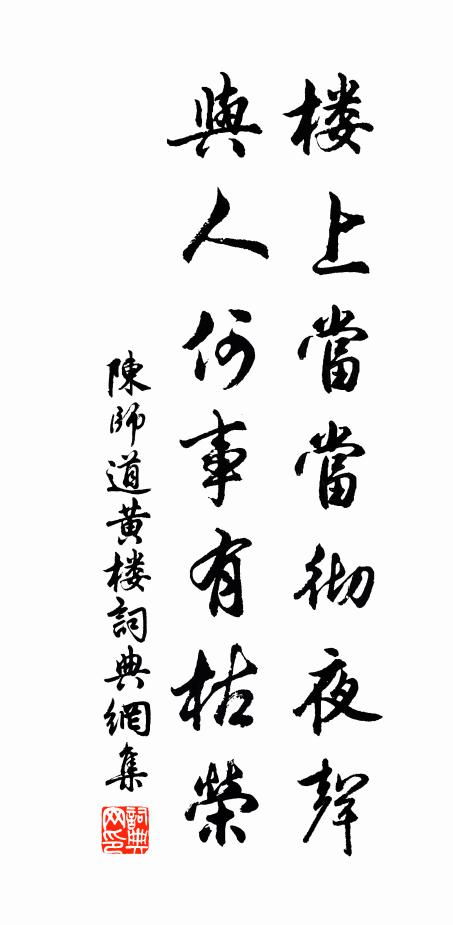 楼上當當彻夜聲
與人何事有枯榮
陳師道黄楼詞典網集
詞典网印